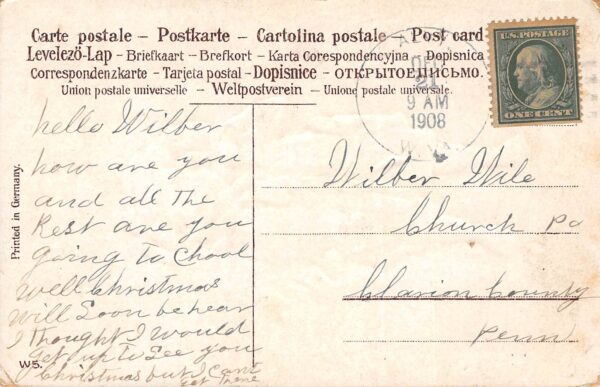 Carte postale – Postkarte – Cartolina postale – Post card
Levelező-Lap – Briefkaart – Brefkort – Karta Corespondencyjna – Dopisnica
Correspondenzkarte – Tarjeta postal – Dopisnice – ОТКРЫТОЕПИСЬМО.
Union postale universelle – Weltpostverein – Unione postale universale.
U.S. POSTAGE
ONE CENT
DEC
21
9 AM
1908
W.VA.
Printed in Germany.
hello Wilber
how are you
and all the
Rest are you
going to Chool
well Christmas
will Soon be hear
I thought I would
get up to See you
Christmas but I Cant
get there
W5.
Wilber Wile
Church Pa
Clarion County
Penn